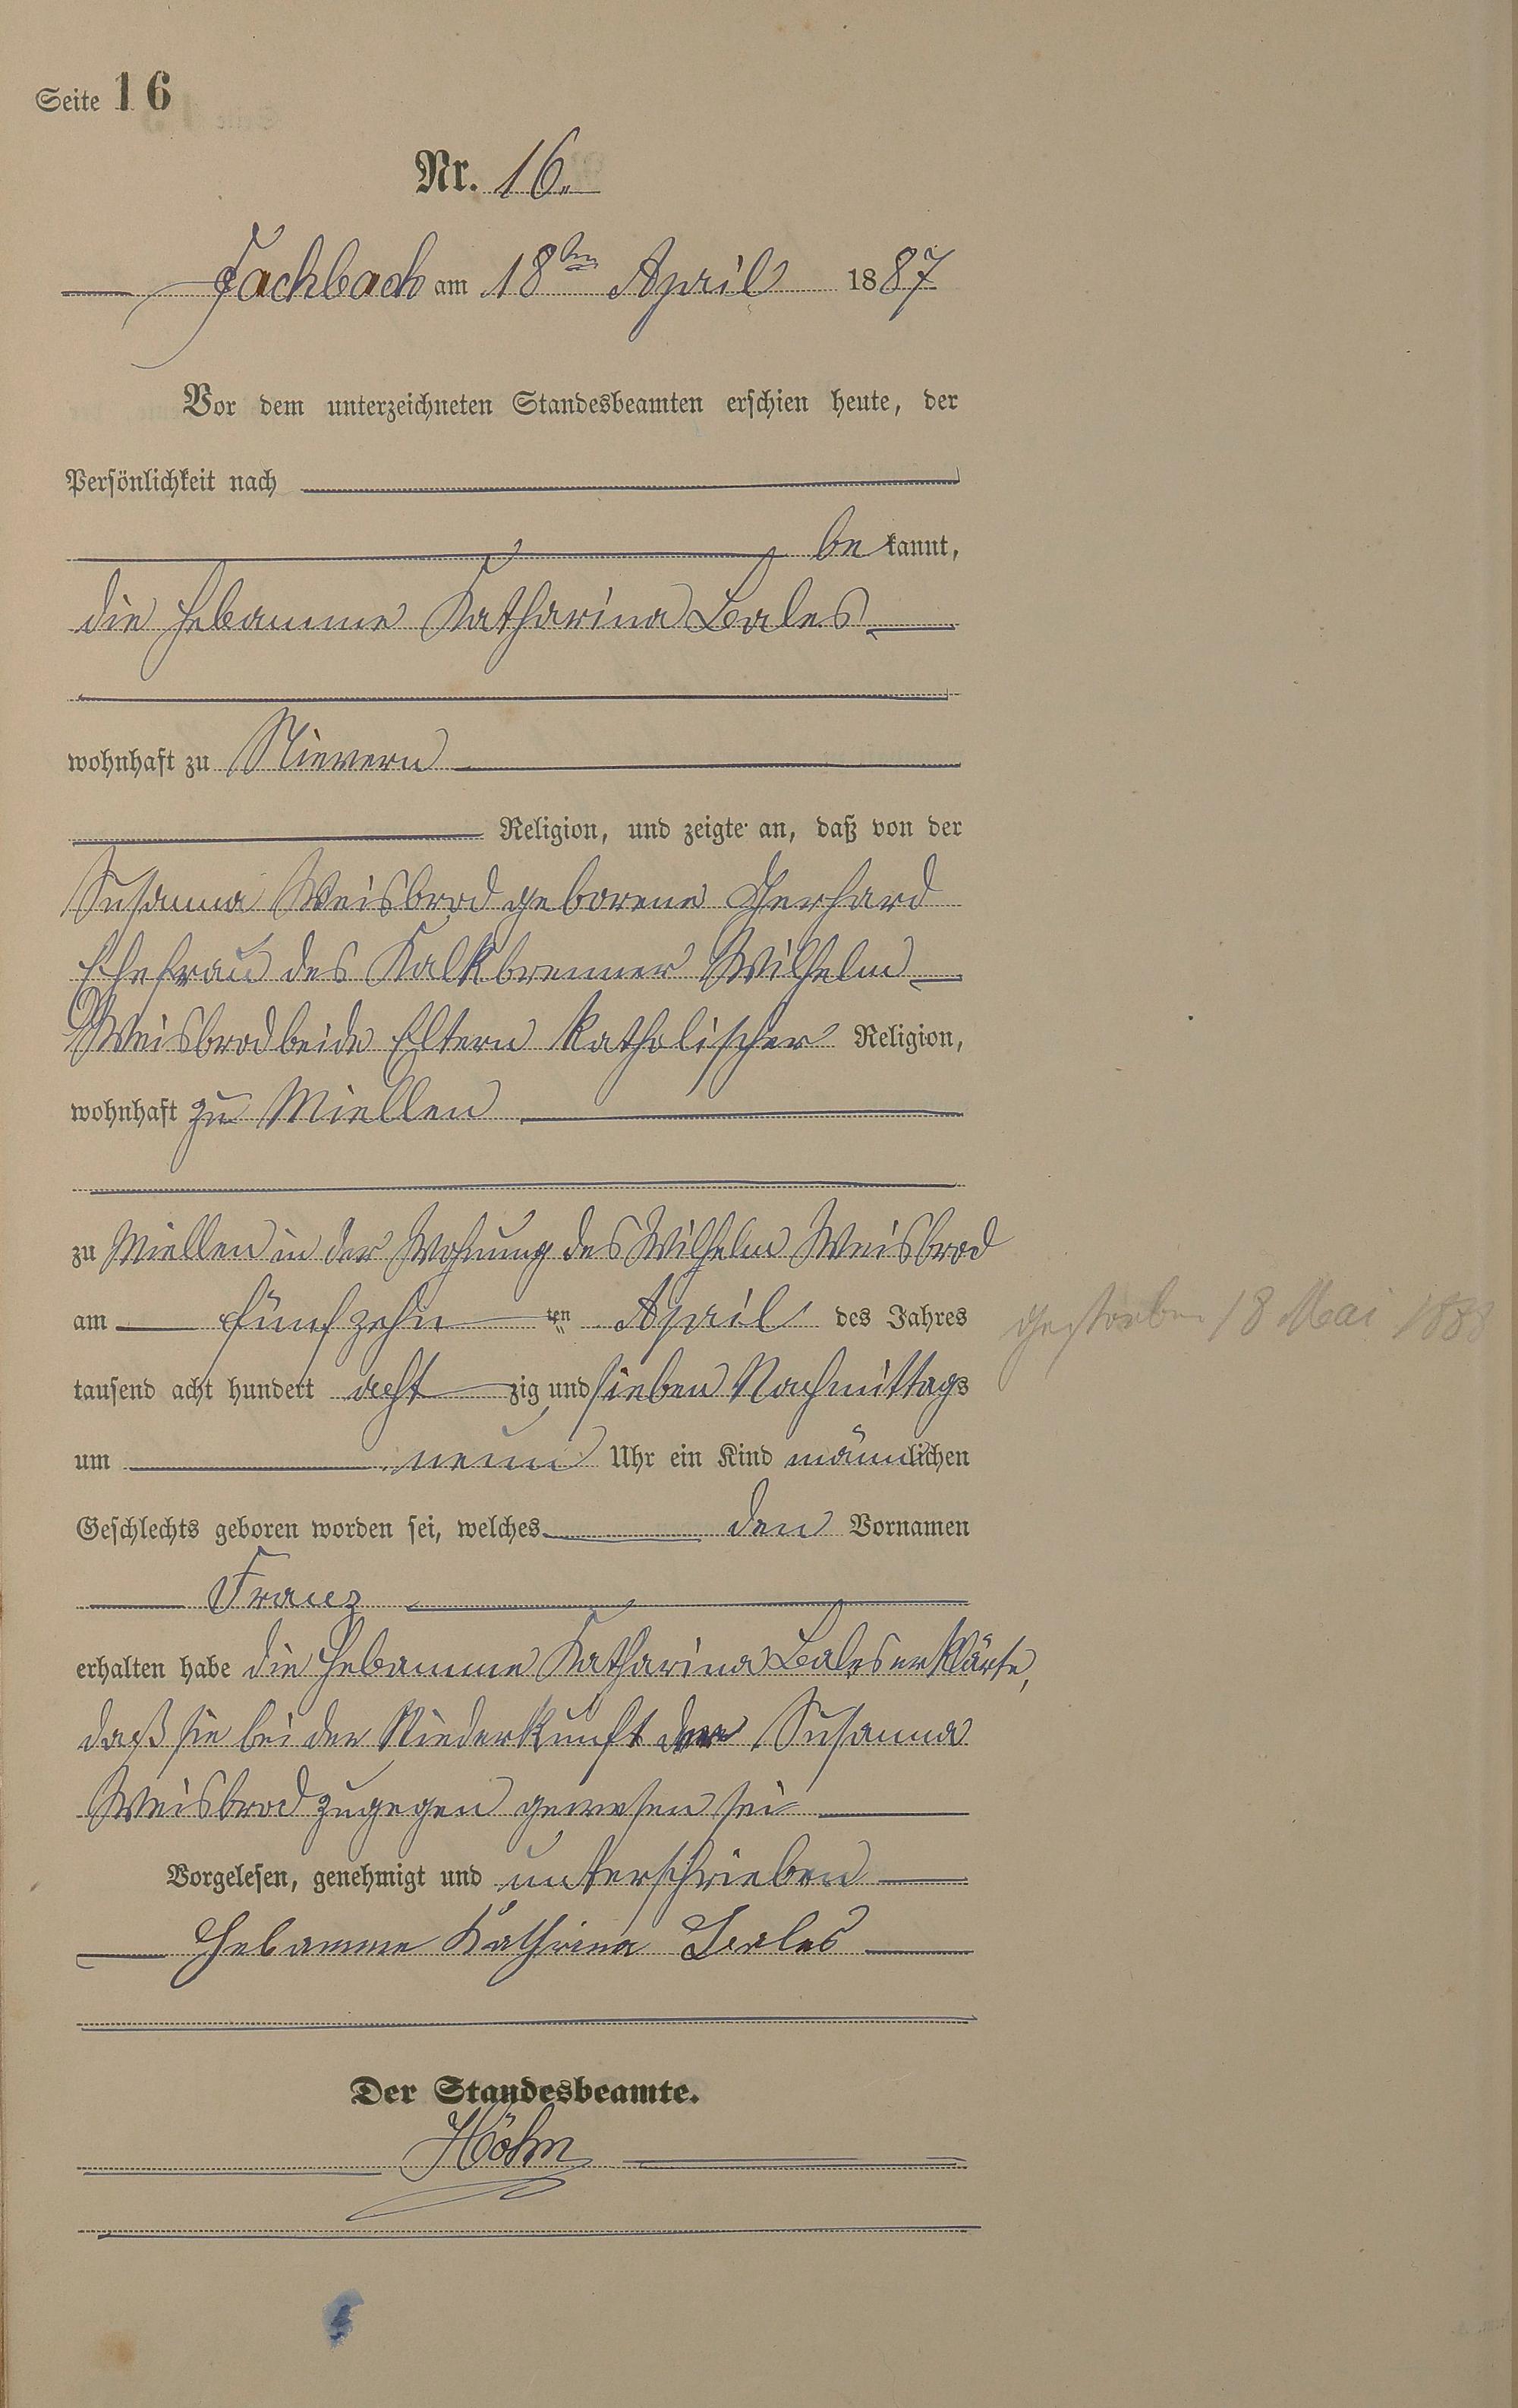 Seite 16
Nr. 16.
Fachbach am 18ten April 1887
Vor dem unterzeichneten Standesbeamten erschien heute, der
Persönlichkeit nach
be kannt,
die Hebamme Katharina Bales
wohnhaft zu Nievern
Religion, und zeigte an, daß von der
Susanna Weisbrod geborene Gerhard
Ehefrau des Kalkbrenner Wilhelm
Weisbrod beide Eltern katholischer Religion,
wohnhaft zu Miellen
zu Miellen in der Wohnung des Wilhelm Weisbrod
am fünfzehn ten April des Jahres
gestorben 18 Mai 1888
tausend acht hundert acht zig und sieben Nachmittags
um neun Uhr ein Kind männlichen
Geschlechts geboren worden sei, welches den Vornamen
Franz
erhalten habe die Hebamme Katharina Bales erklärte,
daß sie bei der Niederkunft der Susanna
Weisbrod zugegen gewesen sei
Vorgelesen, genehmigt und unterschrieben
Hebamme Kathrina Bales
Der Standesbeamte.
Höhn